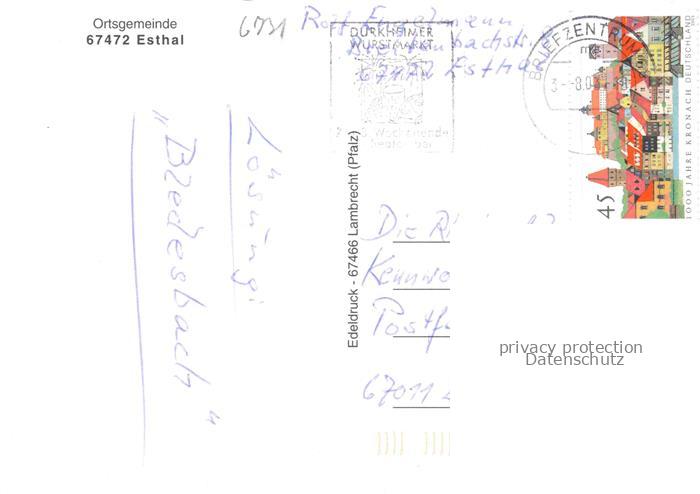 Ortsgemeinde
67472 Esthal
6731
Rolf Engelmann
Breitenbachstr.
67472 Esthal
DÜRKHEIMER
WURSTMARKT
2. 3. Wochenende
September
BRIEFZENTRUM
45
1000 JAHRE KRONACH DEUTSCHLAND
Lösung:
"Bledesbach"
Edeldruck - 67466 Lambrecht (Pfalz)
Die
Kennwo
Postf
67011
privacy protection
Datenschutz